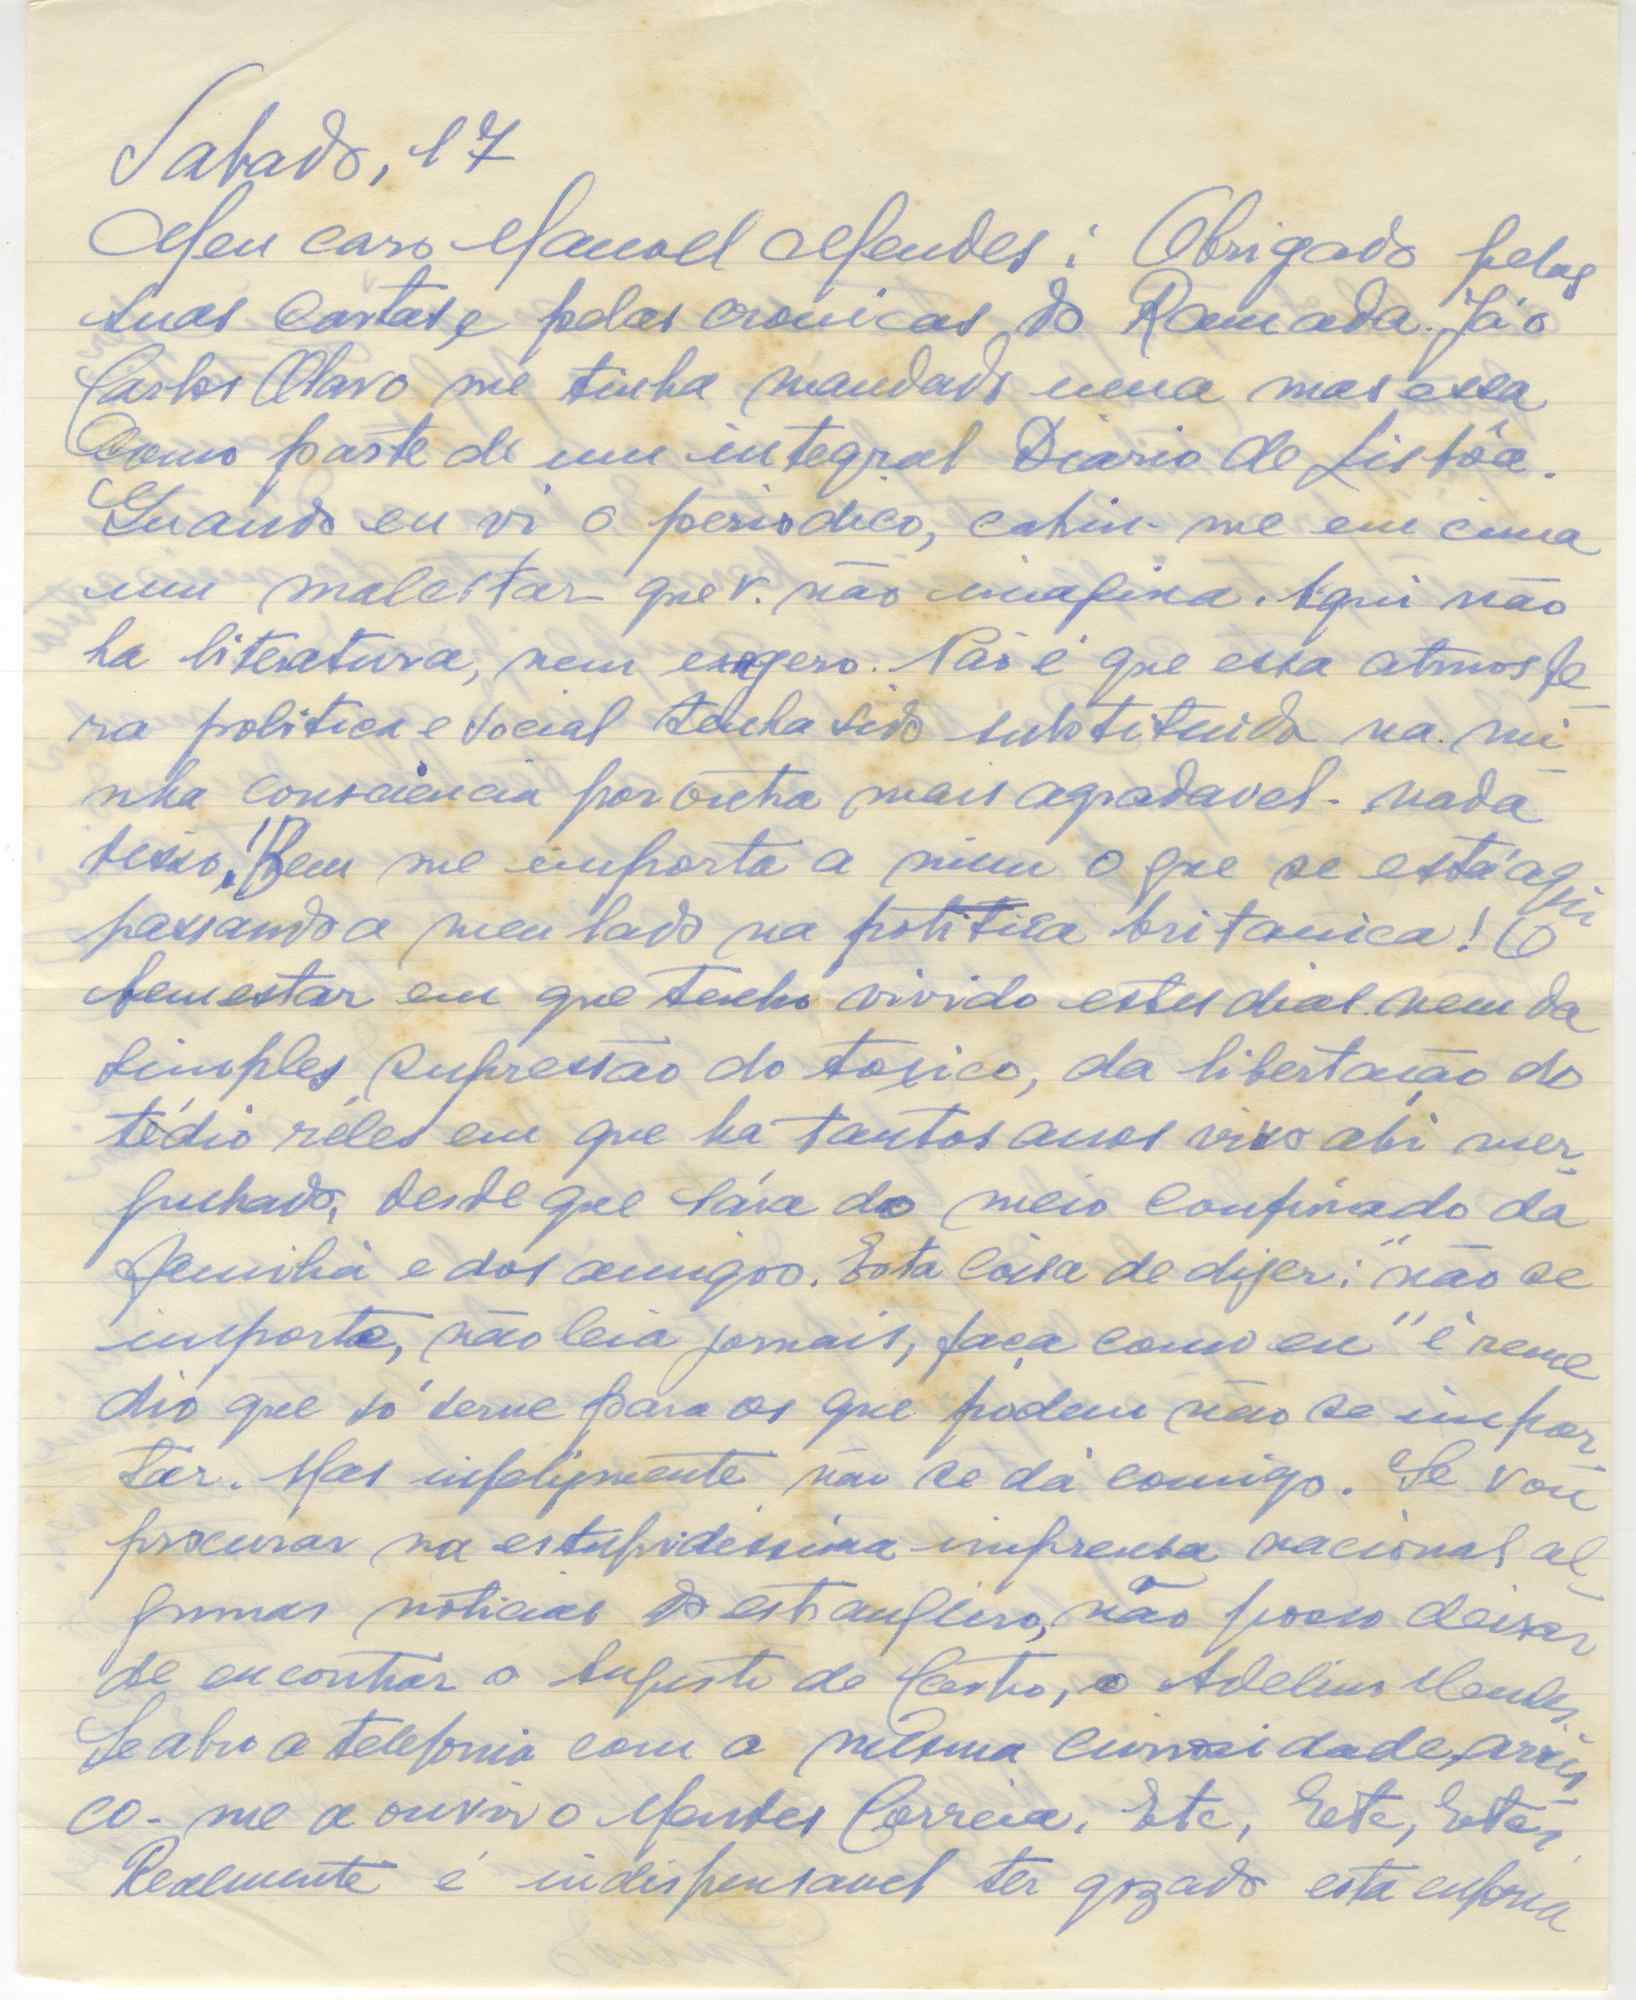 Sabado, 17
Meu caro Manoel Mendes: Obrigado pelas
suas cartas e pelas cronicas do Ramada. Já o
Carlos Olavo me tinha mandado uma mas essa
como parte de um integral Diario de Lisbôa.
Quando eu vi o periodico, cahiu-me em cima
um malestar que v. não imagina. Aqui não
ha literatura, nem exagero. Não é que essa atmosfe-
ra politica e social tenha sido substituida na mi-
nha consciencia por outra mais agradavel - nada
disso! Bem me importa a mim o que se está aqui
passando a meu lado na politica britanica! O
bemestar em que tenho vivido estes dias vem da
simples supressão do toxico, da libertação do
tédio réles em que ha tantos anos vivo ahi mer-
gulhado, desde que sáia do meio confinado da
familia e dos amigos. Esta coisa de dizer: "não se
importe, não leia jornais, faça como eu" é reme
dio que só serve para os que pódem não se impor-
tar. Mas infelizmente não se dá comigo. Se vou
procurar na estupidissima imprensa nacional al-
gumas noticias do estrangeiro, não posso deixar
de encontrar o Augusto de Castro, o Adelino Mendes.
Se abro a telefonia com a mesma curiosidade, arris-
co-me a ouvir o Mendes Correia. Etc, Etc, Etc.
Realmente é indispensavel ter gozado esta euforia